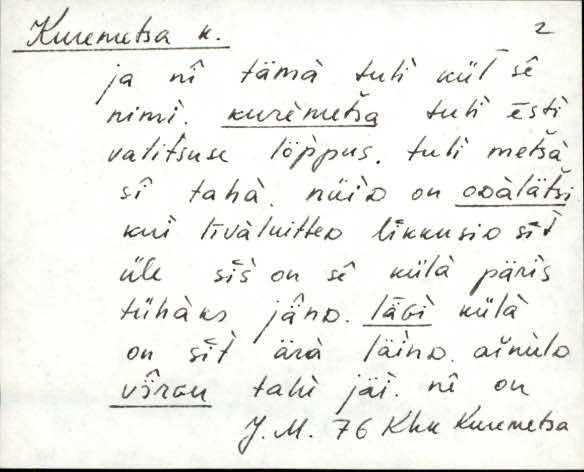 Kuremetsa k. 2
ja nî tämà tuli kül sê
nimi. kurèmetša tuli ēsti
valitsuse lõppus. tuli metšà
sî tahà. nüiD on oDàlätši
kui līvàluitteD likkusiD sīt̀
üle siis̀ on sê külà päris
tühàks jânD. läGì külà
on sīt̀ ärà läinD. aìnulD
vîrGu talù jäi. nê on
J. M. 76 Khk Kuremetsa